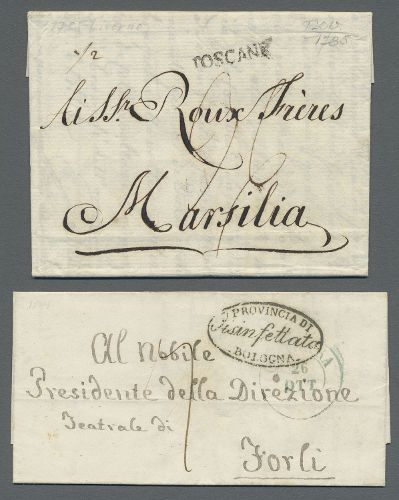 1/2
TOSCANE
Ai SS.ri Roux Frères
Marsilia
PROVINCIA DI
Disinfettato
BOLOGNA
26
OTT
Al Nobile
Presidente della Direzione
Teatrale di
Forlì